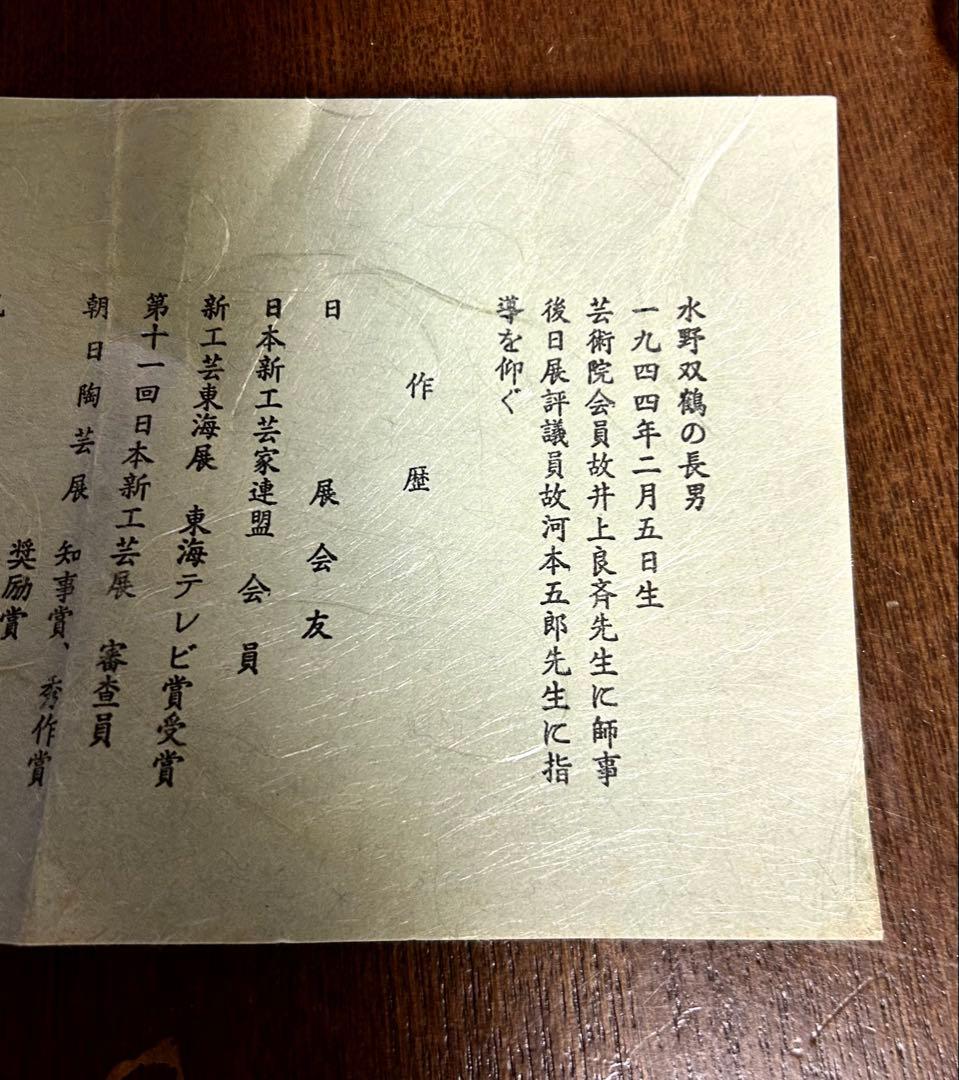 水野双鶴の長男
一九四四年二月五日生
芸術院会員故井上良斉先生に師事
後日展評議員故河本五郎先生に指
導を仰ぐ
作歴
日展会友
日本新工芸家連盟 会員
新工芸東海展 東海テレビ賞受賞
第十一回日本新工芸展 審査員
朝日陶芸展 知事賞、秀作賞
奨励賞